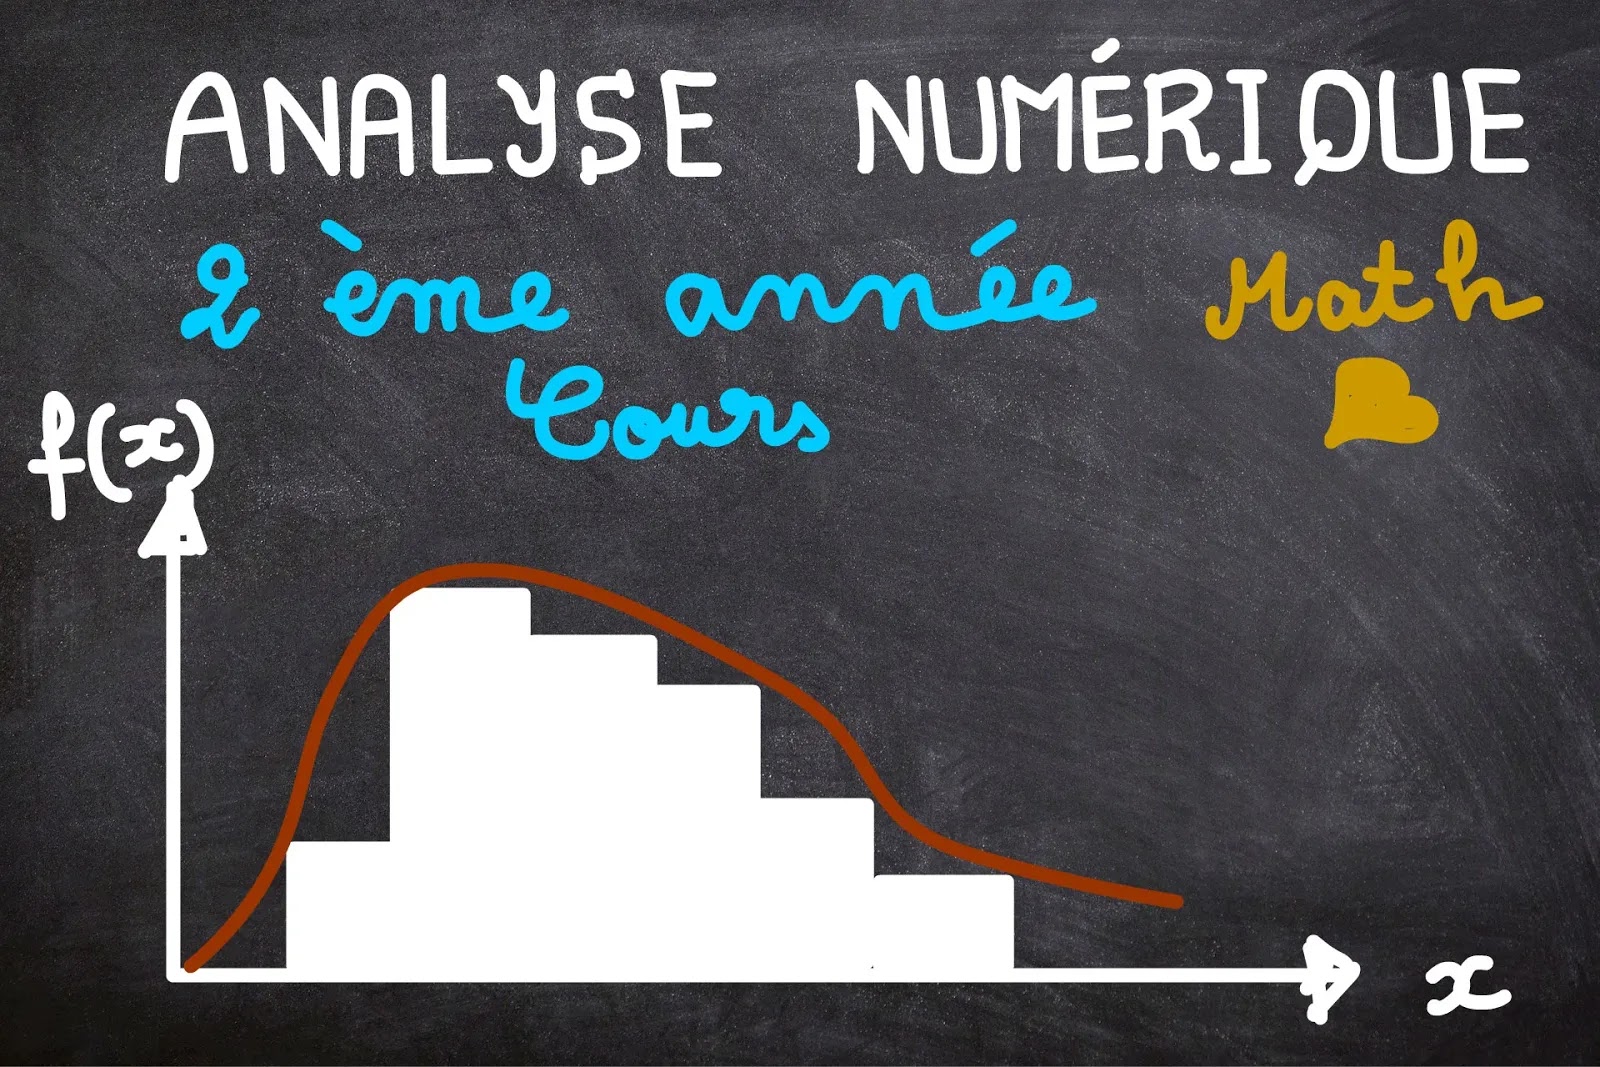 ANALYSE NUMÉRIQUE
2 ème année Math
Cours
f(x)
x